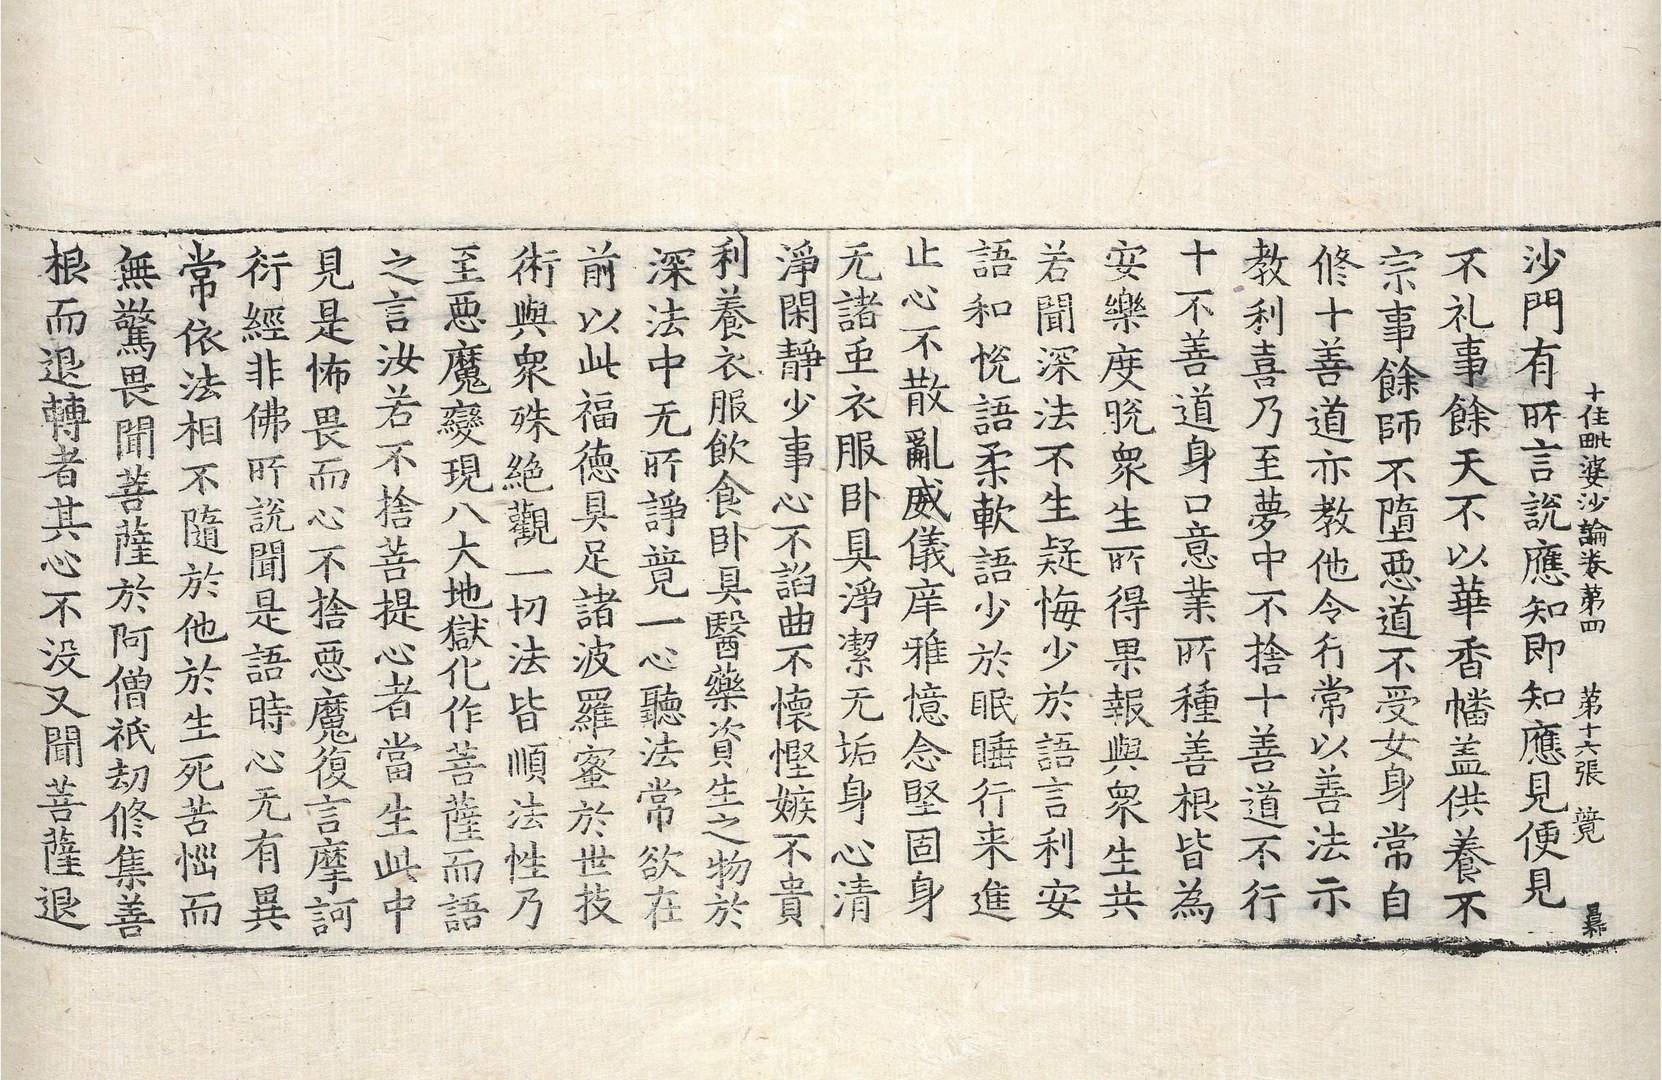 十住毗婆沙論卷第四　第十六張　覚　㬥
沙門有所言說應知即知應見便見
不礼事餘天不以華香幡盖供養不
宗事餘師不墮惡道不受女身常自
修十善道亦教他令行常以善法示
教利喜乃至夢中不捨十善道不行
十不善道身口意業所種善根皆為
安樂度脫衆生所得果報與衆生共
若聞深法不生疑悔少於語言利安
語和悅語柔軟語少於眠睡行来進
止心不散亂威儀庠雅憶念堅固身
无諸虫衣服卧具淨潔无垢身心清
淨閑靜少事心不諂曲不懷慳嫉不貴
利養衣服飲食卧具醫藥資生之物於
深法中无所諍競一心聽法常欲在
前以此福德具足諸波羅蜜於世技
術與衆殊絶觀一切法皆順法性乃
至惡魔變現八大地獄化作菩薩而語
之言汝若不捨菩提心者當生此中
見是怖畏而心不捨惡魔復言摩訶
衍經非佛所說聞是語時心无有異
常依法相不隨於他於生死苦惱而
無驚畏聞菩薩於阿僧祇劫修集善
根而退轉者其心不没又聞菩薩退